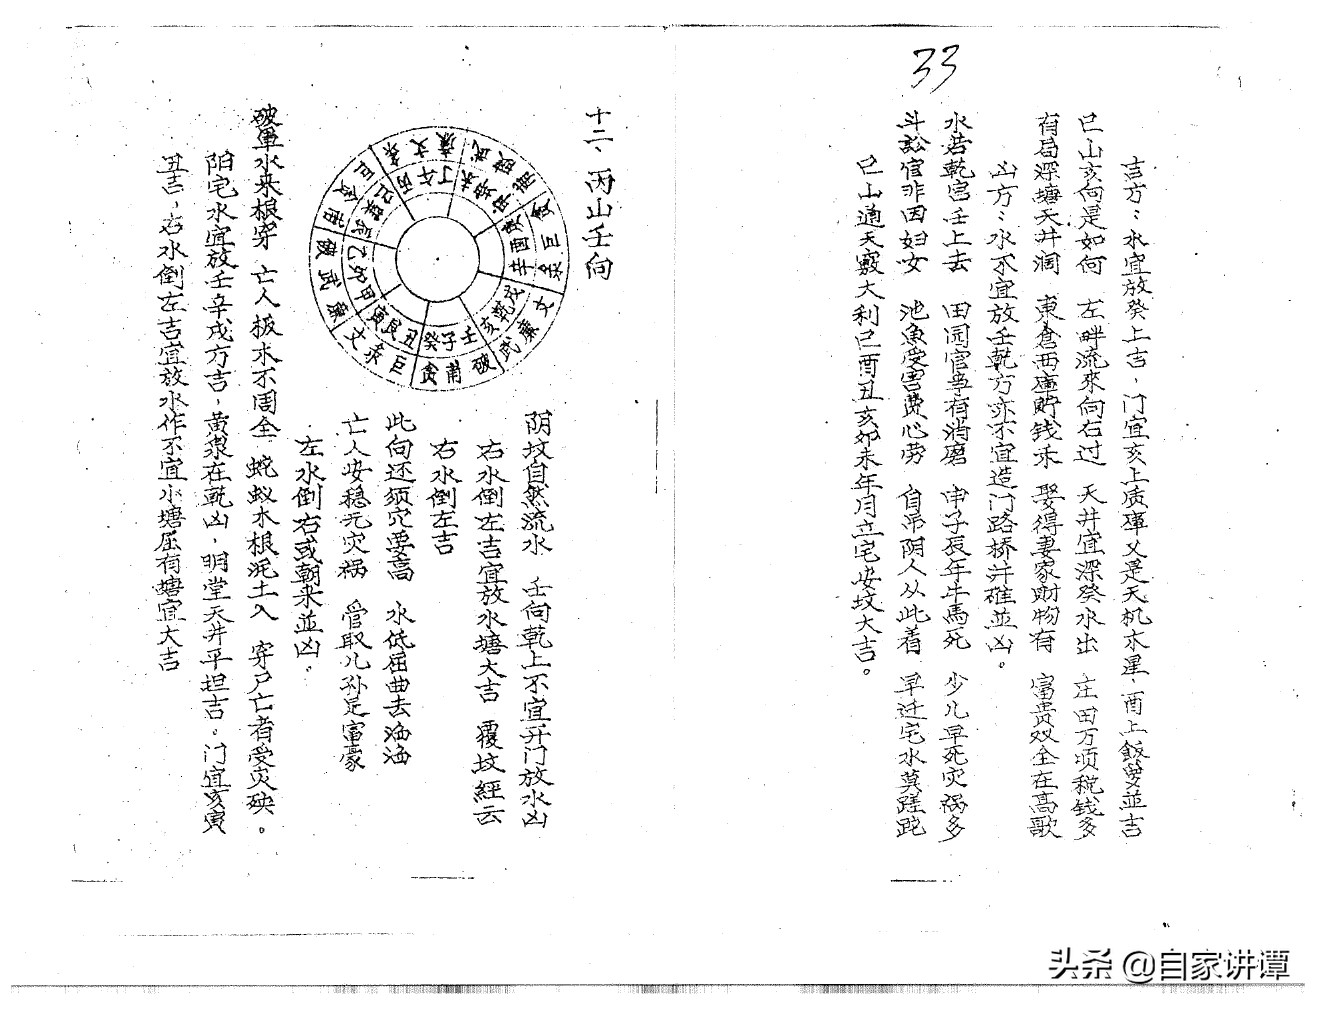 33
吉方：水宜放癸上吉，门宜亥上质库又是天机木星，酉上饭萝並吉
巳山亥向是如何 左畔流來向右过 天井宜深癸水出 庄田万顷税钱多
有局深塘天井润 東倉西庫貯钱禾 娶得妻家财物有 富贵双全在高歌
凶方：水不宜放壬乾方亦不宜造门路桥井碓並凶。
水若乾宫壬上去 田园官事有消磨 申子辰年牛馬死 少儿早死灾祸多
斗訟官非因妇女 池魚受害费心劳 自吊阴人从此着 早迁宅水莫蹉跎
巳山通天竅大利巳酉丑亥卯未年月立宅安坟大吉。
十二、丙山壬向
丙午丁
未坤申
庚酉辛
戌乾亥
壬子癸
丑艮寅
甲卯乙
阴坟自然流水 壬向乾上不宜开门放水凶
右水倒左吉宜放水塘大吉 覆坟經云
右水倒左吉
此向还须穴要高 水低屈曲去滔滔
亡人安稳无灾祸 管取儿孙是富豪
左水倒右或朝来並凶。
破軍水来根穿 亡人板木不周全 蛇蚁木根泥土入 穿尸亡者受灾殃。
阳宅水宜放壬辛戌方吉，黄泉在乾凶，明堂天井平坦吉。门宜亥寅
丑吉，右水倒左吉宜放水作不宜小塘屈有塘宜大吉
头条 @自家讲谭